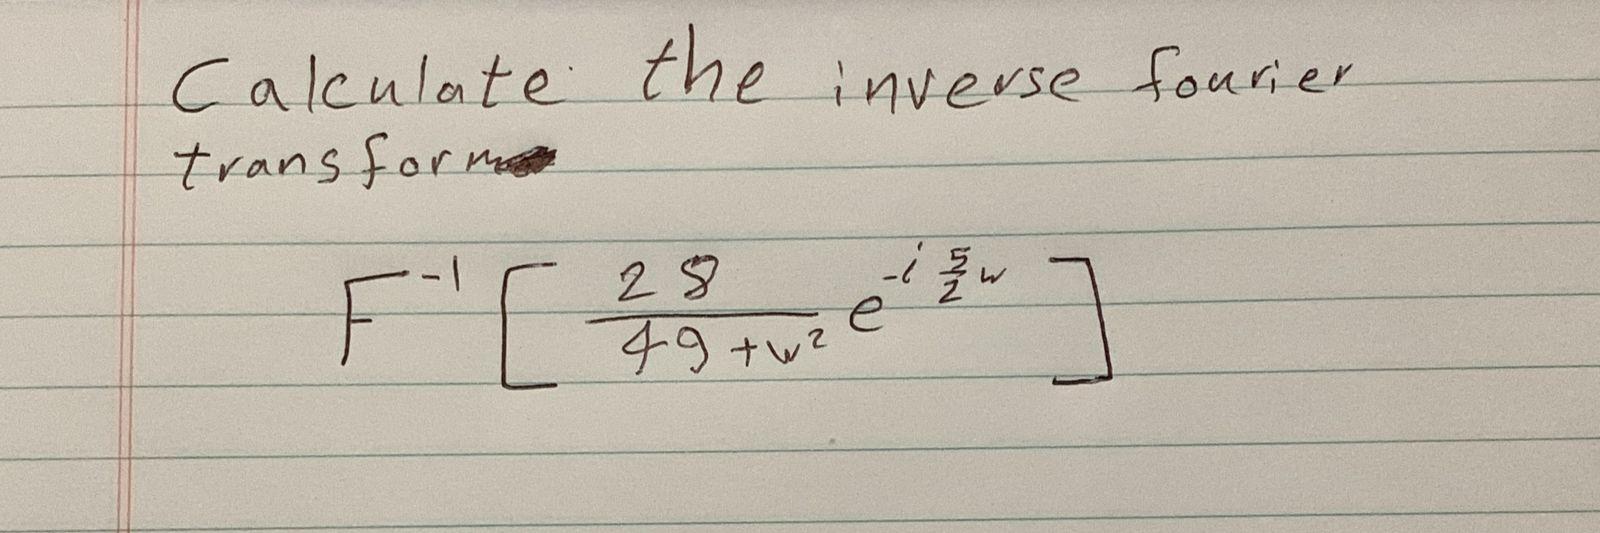 Calculate the inverse fourier
transform
F^{-1} [ \frac{28}{49+w^2} e^{-i \frac{5}{2} w} ]